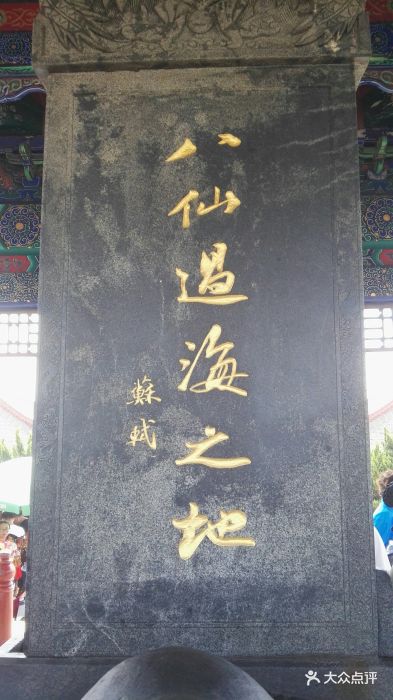 八仙過海之地
蘇軾
大众点评